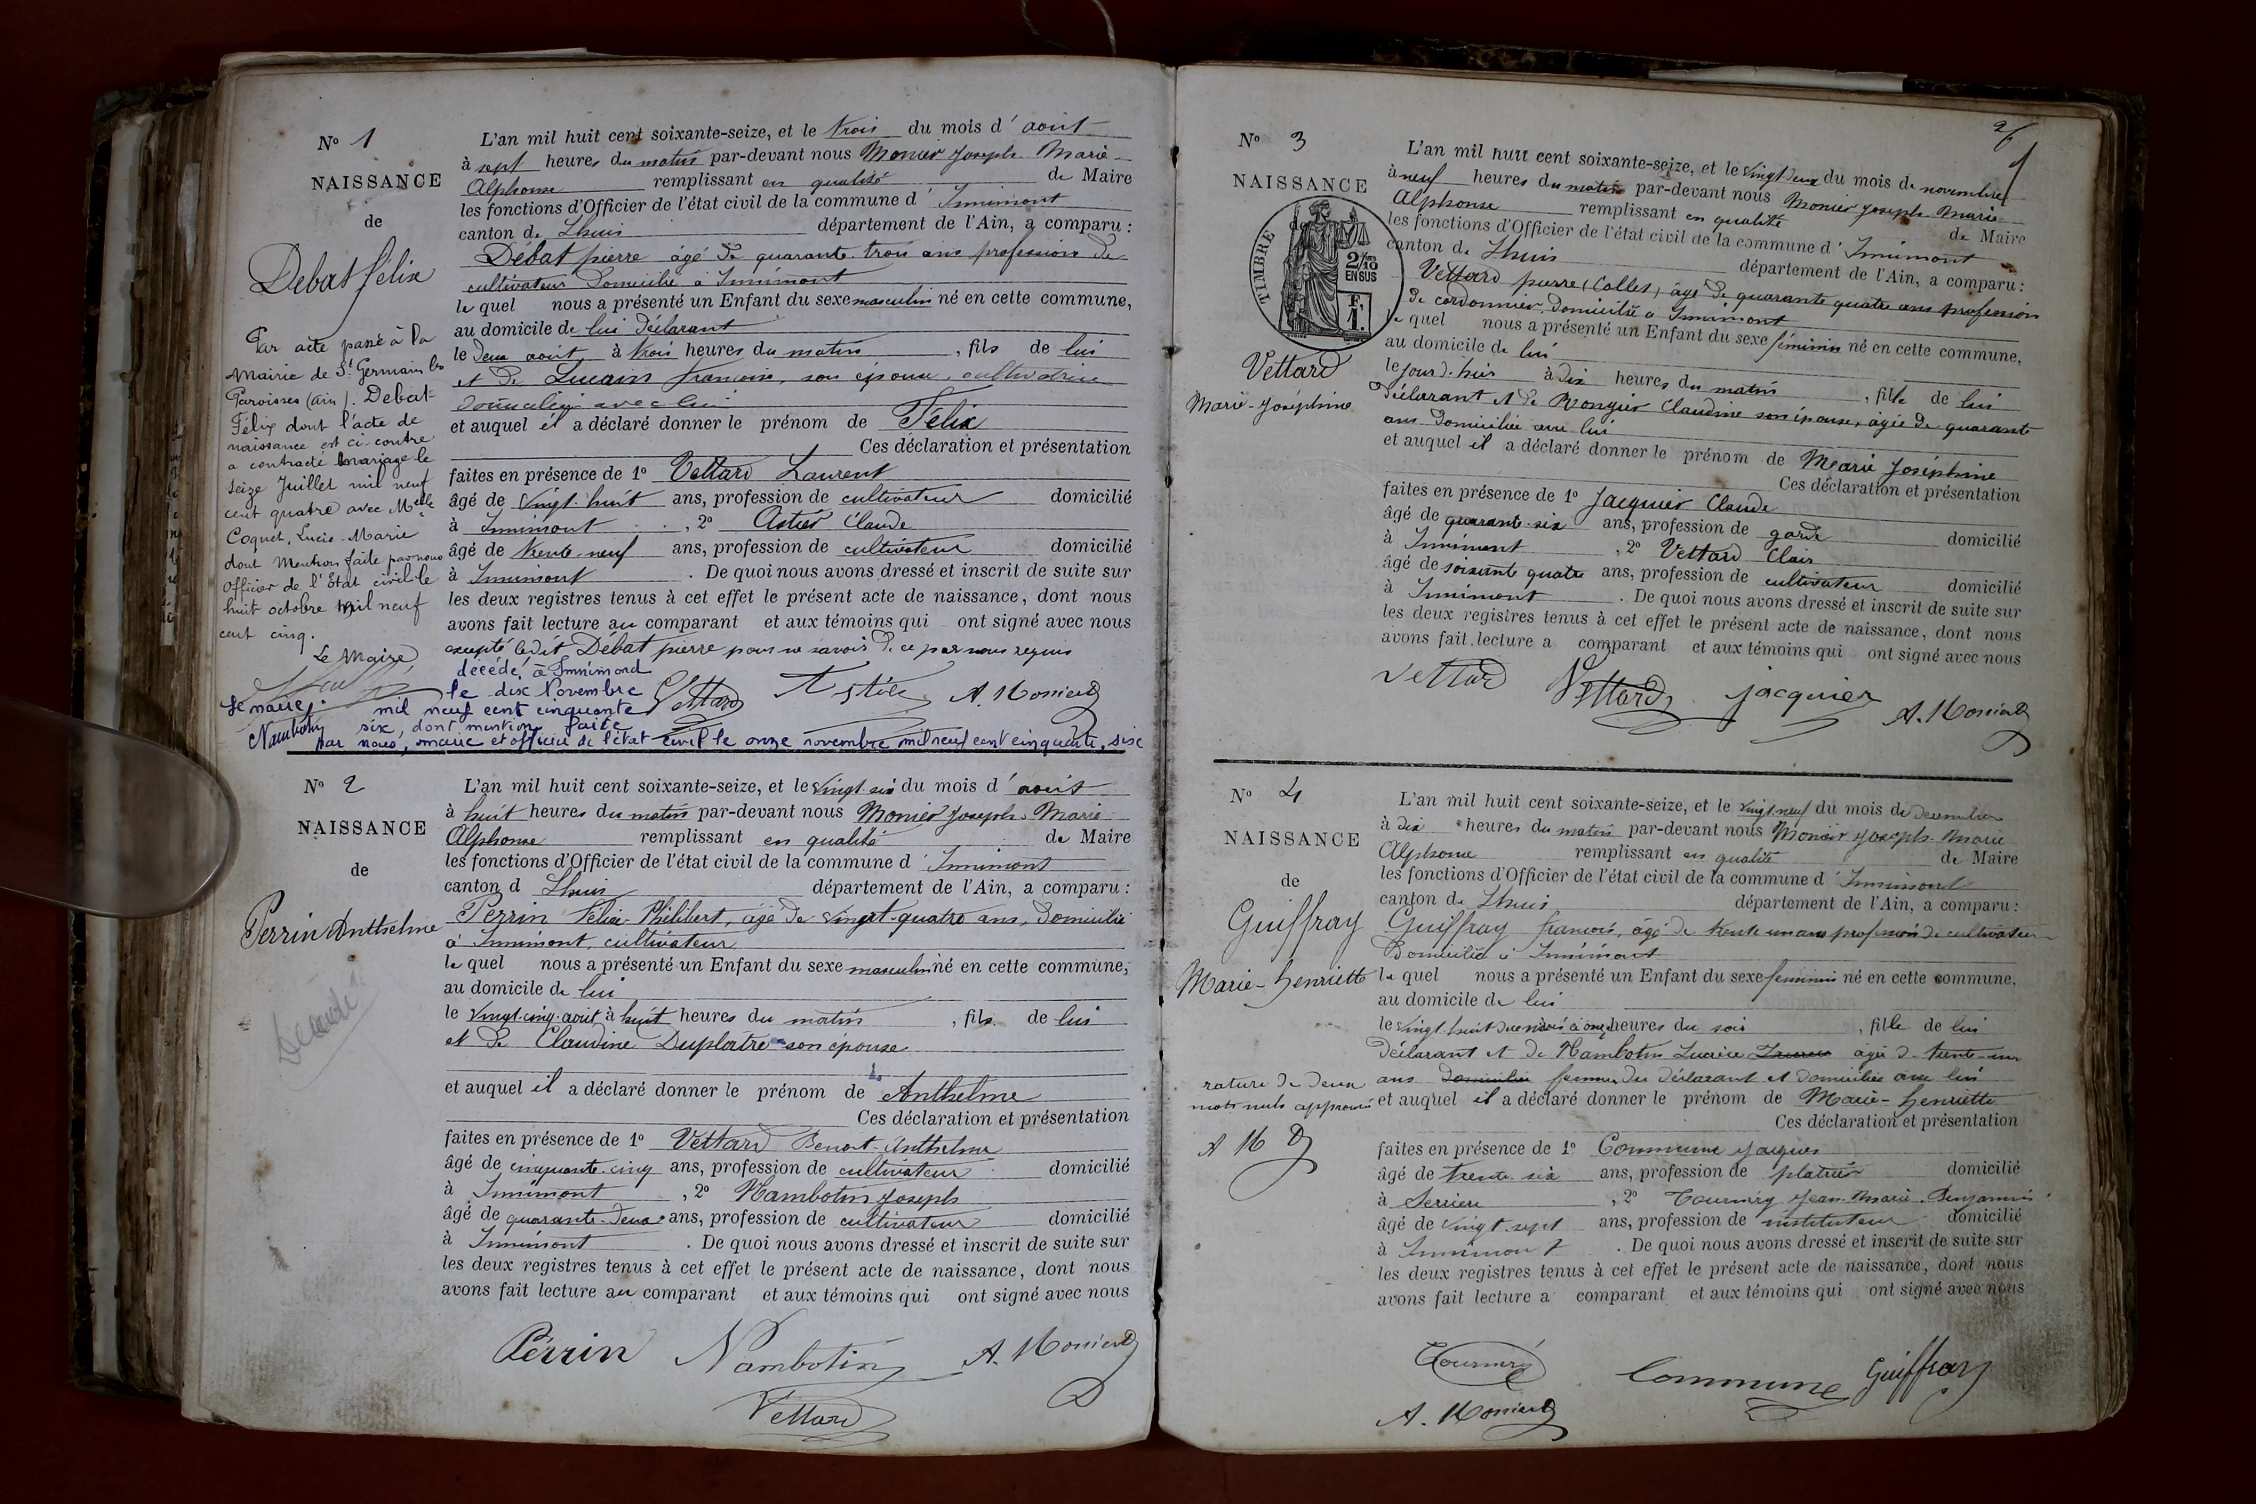 N° 1
NAISSANCE
de
Debat félix
Par acte passé à la
Mairie de St Germain les
Paroisses (Ain). Debat
Félix dont l'acte de
naissance est ci-contre
a contracté mariage le
seize Juillet mil neuf
cent quatre avec Melle
Coquet, Lucie-Marie
dont Mention faite par nous
officier de l'Etat civil le
huit octobre mil neuf
cent cinq.
Le Maire,
L'an mil huit cent soixante-seize, et le trois du mois d'août
à sept heures du matin par-devant nous Monier Joseph Marie
Alphonse remplissant en qualité de Maire
les fonctions d'Officier de l'état civil de la commune d'Innimont
canton de Lhuis département de l'Ain, a comparu :
Débat pierre âgé de quarante trois ans profession de
cultivateur Domicilié à Innimont
le quel nous a présenté un Enfant du sexe masculin né en cette commune,
au domicile de lui déclarant
le deux août à trois heures du matin, fils de lui
et de françoise, son épouse, cultivatrice
domiciliée avec lui
et auquel il a déclaré donner le prénom de Félix
Ces déclaration et présentation
faites en présence de 1° Vettard Laurent
âgé de vingt huit ans, profession de cultivateur domicilié
à Innimont, 2° Astier Claude
âgé de trente-neuf ans, profession de cultivateur domicilié
à Innimont. De quoi nous avons dressé et inscrit de suite sur
les deux registres tenus à cet effet le présent acte de naissance, dont nous
avons fait lecture au comparant et aux témoins qui ont signé avec nous
excepté ledit Débat pierre pour ne savoir de ce par nous requis
décédé à Innimond
le dix Novembre
mil neuf cent cinquante
six, dont mention faite
par nous, maire et officier de l'état civil le onze novembre mil neuf cent cinquante, six
Le maire,
Nambotin
Vettard Astier A. Monier
N° 2
NAISSANCE
de
Perrin Anthelme
Décédé
L'an mil huit cent soixante-seize, et le vingt-six du mois d'août
à huit heures du matin par-devant nous Monier Joseph Marie
Alphonse remplissant en qualité de Maire
les fonctions d'Officier de l'état civil de la commune d'Innimont
canton d Lhuis département de l'Ain, a comparu :
Perrin Félix Philibert, âgé de vingt-quatre ans, domicilié
à Innimont, cultivateur
le quel nous a présenté un Enfant du sexe masculin né en cette commune,
au domicile de lui
le vingt-cinq août à huit heures du matin, fils de lui
et de Claudine Duplatre son epouse
et auquel il a déclaré donner le prénom de Anthelme
Ces déclaration et présentation
faites en présence de 1° Vettard Benoit-Anthelme
âgé de cinquante-cinq ans, profession de cultivateur domicilié
à Innimont, 2° Nambotin Joseph
âgé de quarante-deux ans, profession de cultivateur domicilié
à Innimont. De quoi nous avons dressé et inscrit de suite sur
les deux registres tenus à cet effet le présent acte de naissance, dont nous
avons fait lecture au comparant et aux témoins qui ont signé avec nous
Perrin Nambotin A. Monier
Vettard
N° 3
NAISSANCE
de
TIMBRE
2/10 EN SUS
F. 1.
Vettard
Marie-Joséphine
L'an mil huit cent soixante-seize, et le vingt deux du mois de novembre
à neuf heures du matin par-devant nous Monier Joseph Marie
Alphonse remplissant en qualité de Maire
les fonctions d'Officier de l'état civil de la commune d'Innimont
canton de Lhuis département de l'Ain, a comparu :
Vettard pierre (Collet) âgé de quarante quatre ans profession
de cordonnier domicilié à Innimont
le quel nous a présenté un Enfant du sexe féminin né en cette commune,
au domicile de lui
le jour d'hier à dix heures du matin, fille de lui
déclarant et de Rongier Claudine son épouse, âgée de quarante
ans domiciliée avec lui
et auquel il a déclaré donner le prénom de Marie Joséphine
Ces déclaration et présentation
faites en présence de 1° Jacquier Claude
âgé de quarante-six ans, profession de garde domicilié
à Innimont, 2° Vettard Clair
âgé de soixante quatre ans, profession de cultivateur domicilié
à Innimont. De quoi nous avons dressé et inscrit de suite sur
les deux registres tenus à cet effet le présent acte de naissance, dont nous
avons fait lecture a comparant et aux témoins qui ont signé avec nous
Vettard Vettard Jacquier A. Monier
N° 4
NAISSANCE
de
Guiffray
Marie-henriette
rature de deux
mots nuls approuvé
A M
L'an mil huit cent soixante-seize, et le vingt-neuf du mois de decembre
à dix heures du matin par-devant nous Monier Joseph Marie
Alphonse remplissant en qualité de Maire
les fonctions d'Officier de l'état civil de la commune d'Innimont
canton de Lhuis département de l'Ain, a comparu :
Guiffray françois, âgé de trente un ans profession de cultivateur
Domicilié à Innimont
le quel nous a présenté un Enfant du sexe féminin né en cette commune,
au domicile de lui
le vingt-huit à onze heures du soir, fille de lui
déclarant et de Nambotin âgée de trente-un
ans domiciliée femme du déclarant et domiciliée avec lui
et auquel il a déclaré donner le prénom de Marie-henriette
Ces déclaration et présentation
faites en présence de 1° Commune Jacques
âgé de trente-six ans, profession de platrier domicilié
à Serrieu, 2° Tournéry Jean-Marie Benjamin
âgé de vingt-sept ans, profession de instituteur domicilié
à Innimont. De quoi nous avons dressé et inscrit de suite sur
les deux registres tenus à cet effet le présent acte de naissance, dont nous
avons fait lecture a comparant et aux témoins qui ont signé avec nous
Commune Guiffray
A. Monier